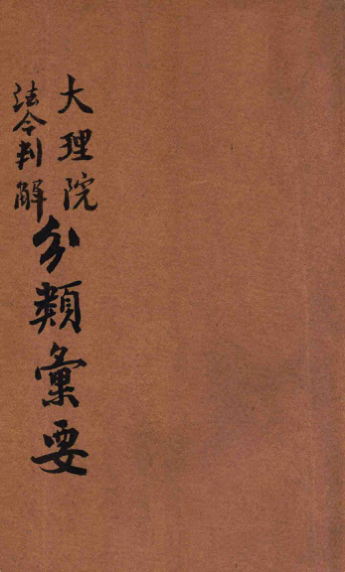 大理院
法令判解
分類彙要